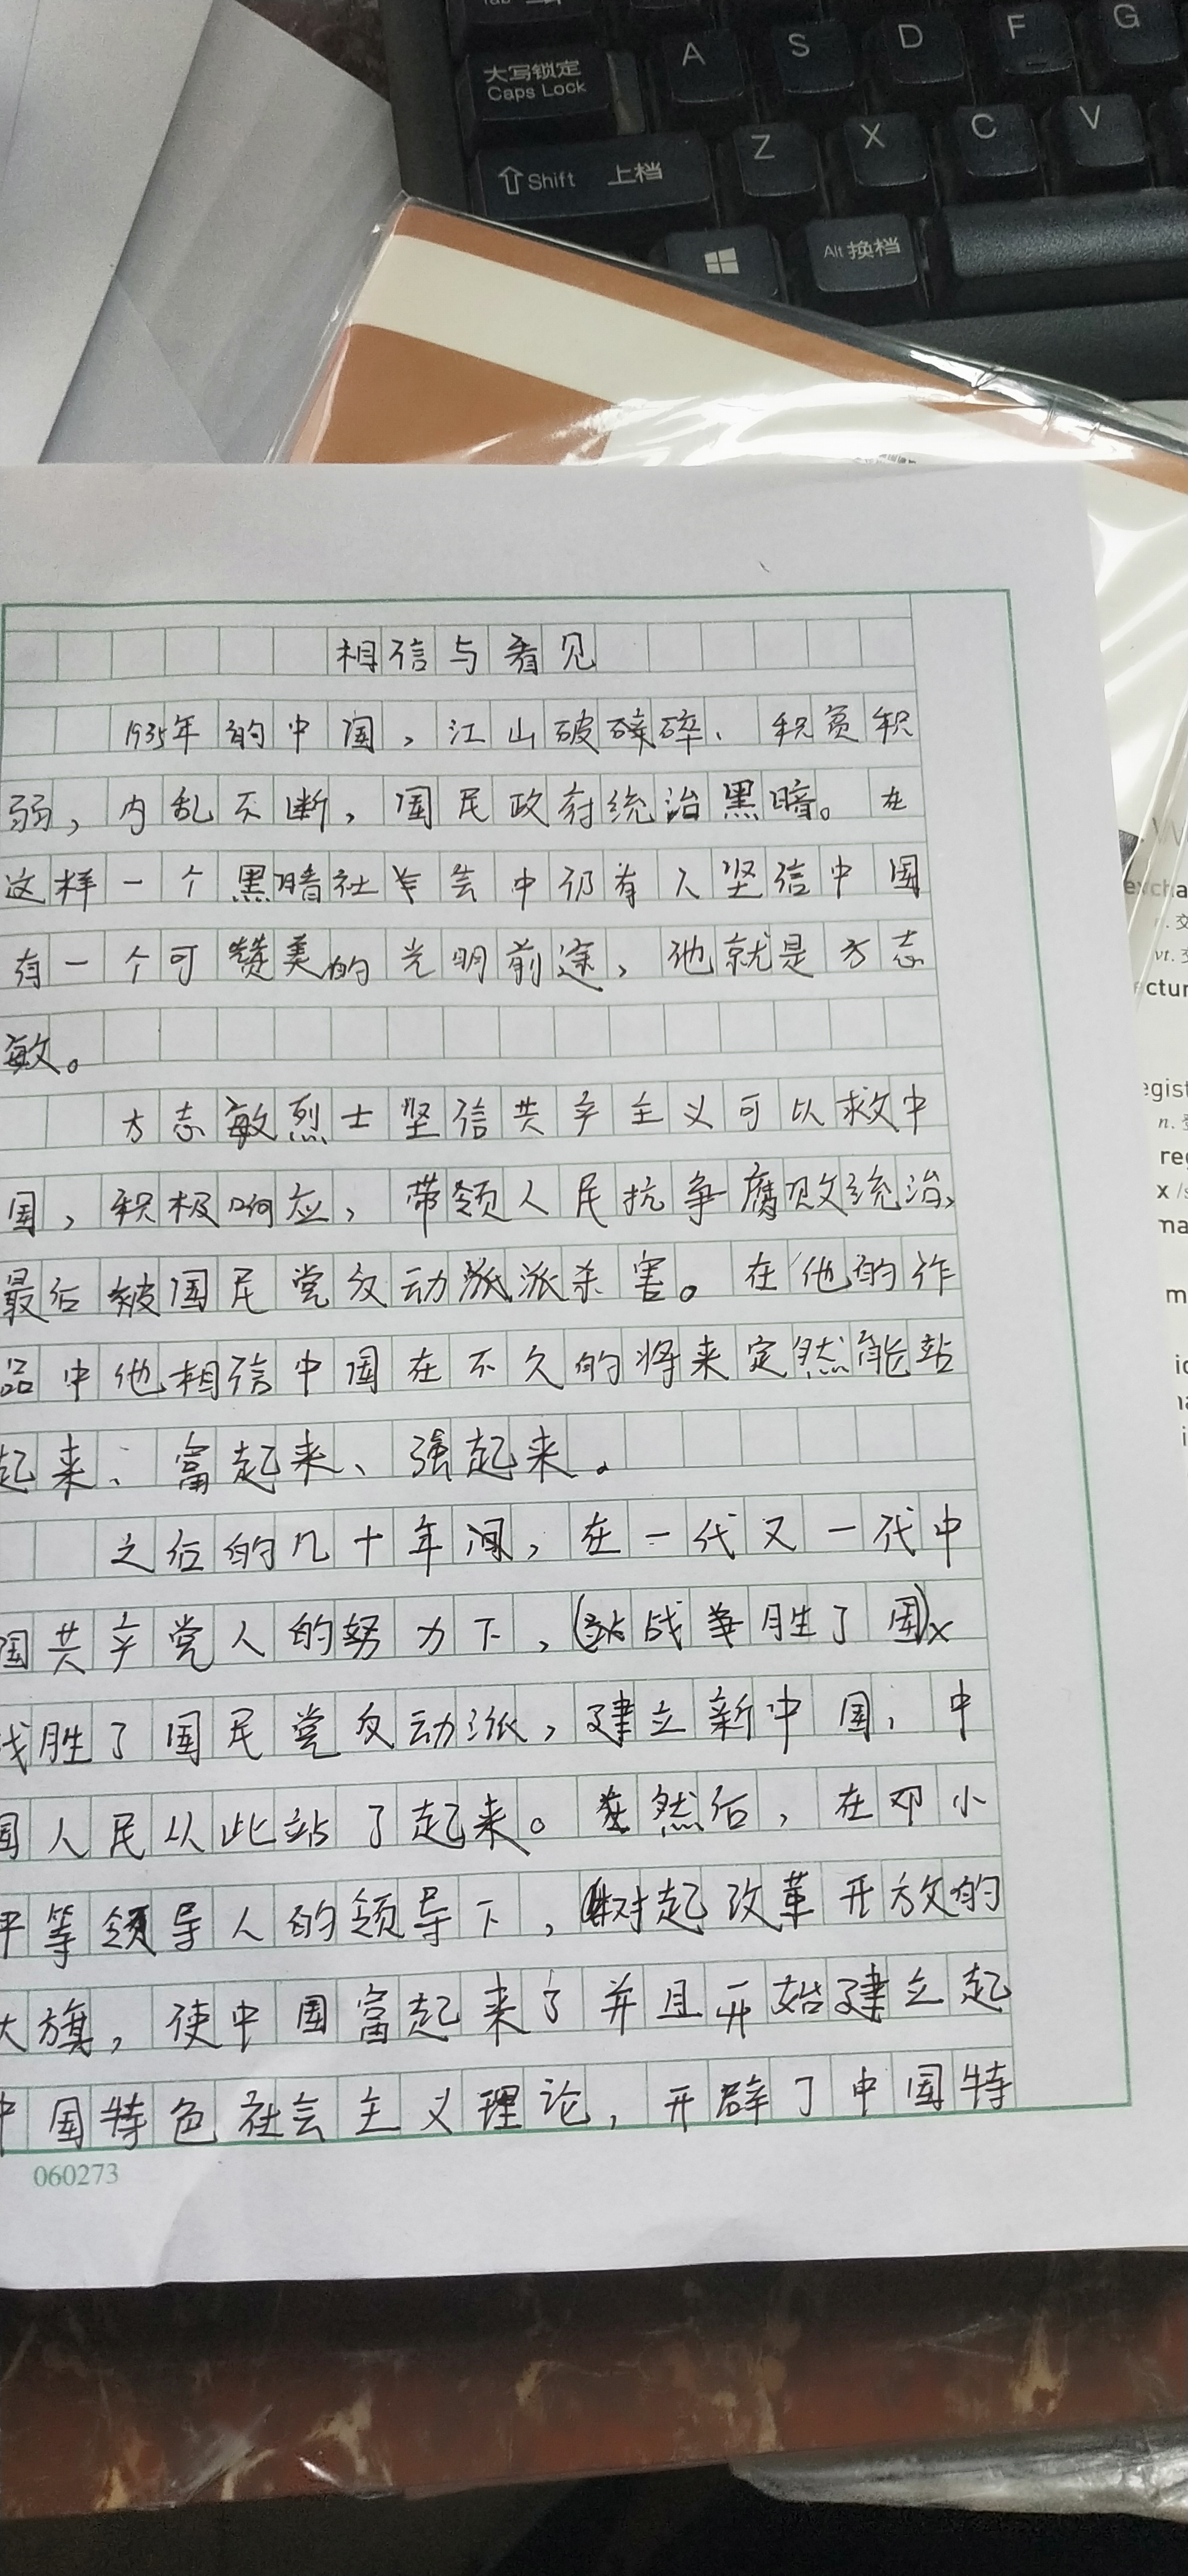 Tab
A
S
D
F
G
大写锁定
Caps Lock
Z
X
C
V
Shift 上档
Alt 换档
相信与看见
1935年的中国，江山破碎、积贫积
弱，内乱不断，国民政府统治黑暗。在
这样一个黑暗社会中仍有人坚信中国
有一个可赞美的光明前途，他就是方志
敏。
方志敏烈士坚信共产主义可以救中
国，积极响应，带领人民抗争腐败统治，
最后被国民党反动派杀害。在他的作
品中他相信中国在不久的将来定然能站
起来、富起来、强起来。
之后的几十年间，在一代又一代中
国共产党人的努力下，(战争胜了国)x
战胜了国民党反动派，建立新中国，中
国人民从此站了起来。然后，在邓小
平等领导人的领导下，树起改革开放的
大旗，使中国富起来了并且开始建立起
中国特色社会主义理论，开辟了中国特
060273
n.
vt.
egist
n.
x /s